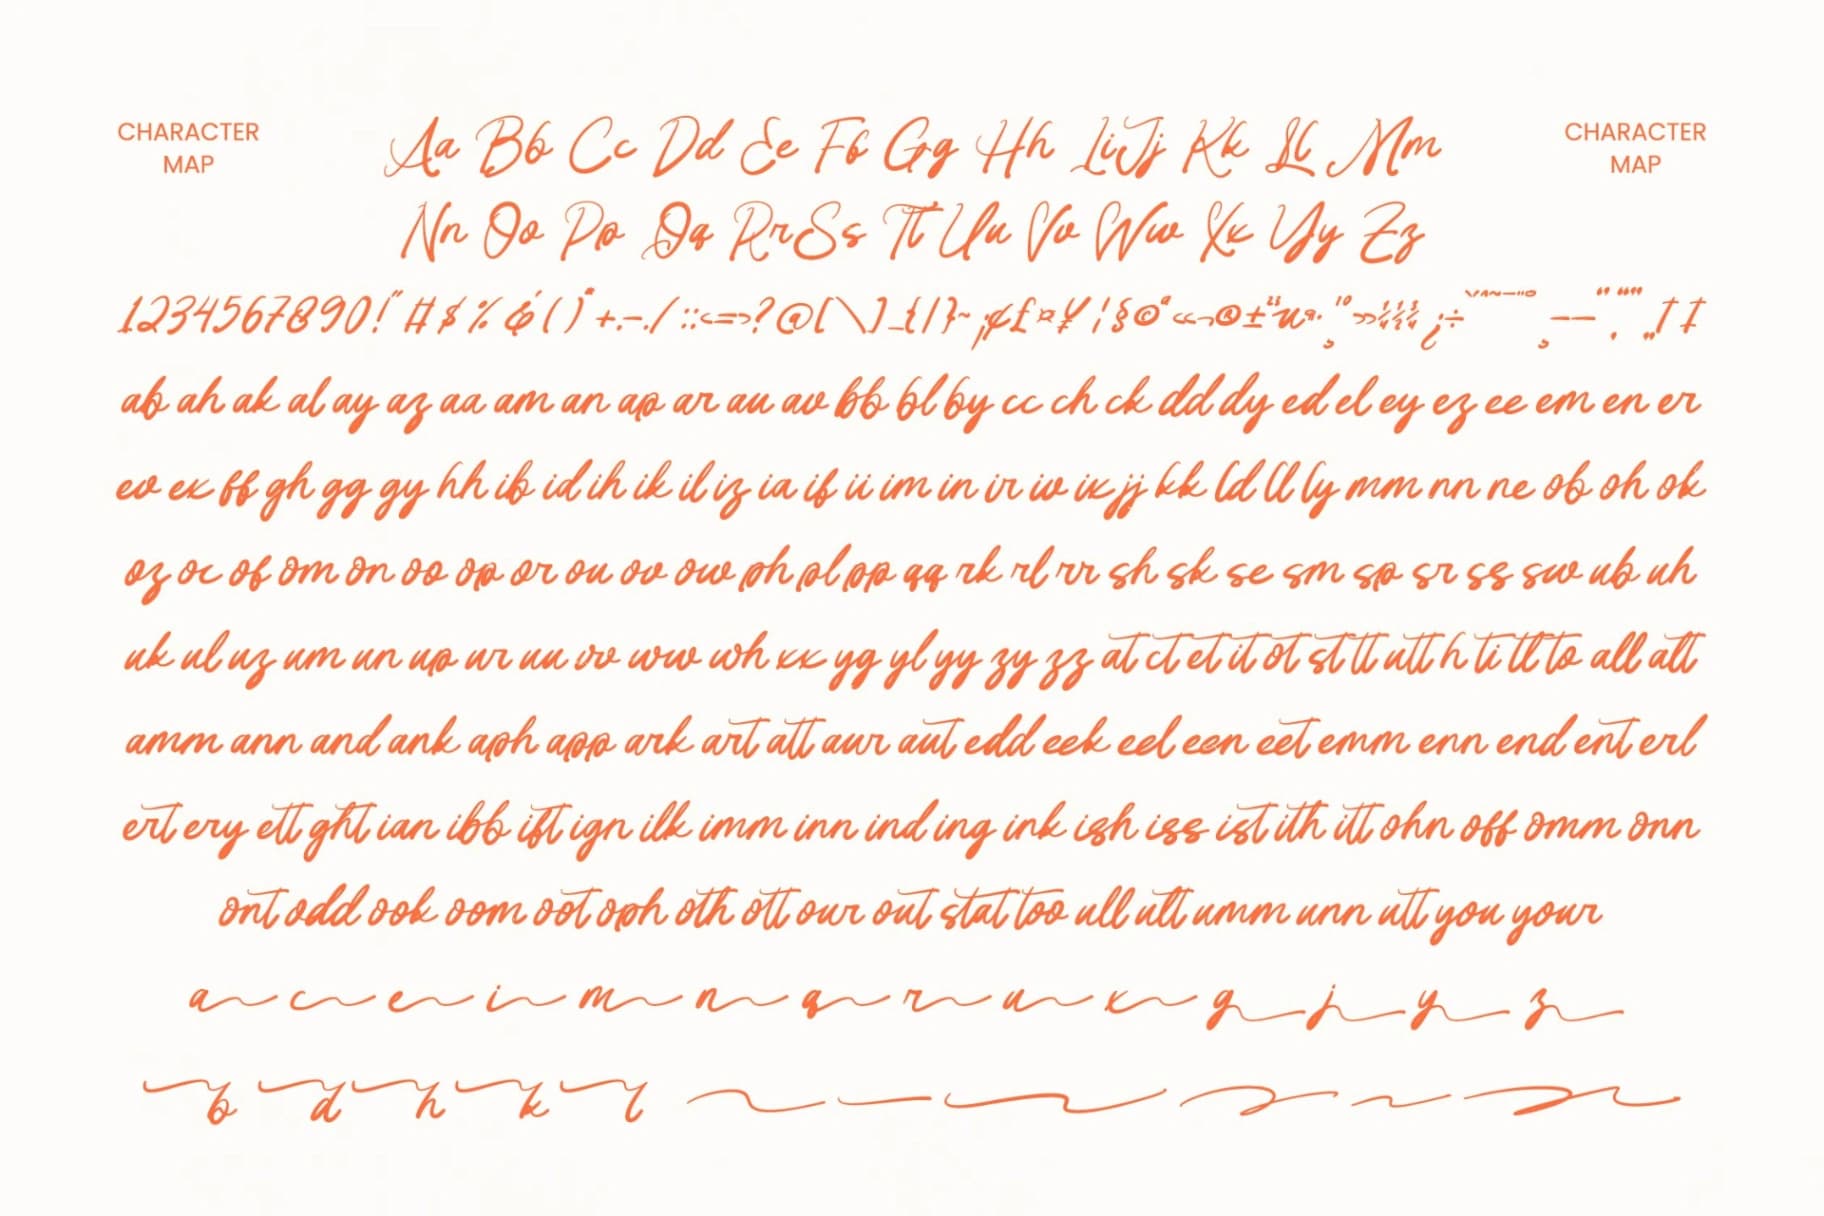 CHARACTER
MAP
CHARACTER
MAP
Aa Bb Cc Dd Ee Ff Gg Hh Ii Jj Kk Ll Mm
Nn Oo Pp Qq Rr Ss Tt Uu Vv Ww Xx Yy Zz
1234567890!" # $ % & ' ( ) * + , - . / : ; < = > ? @ [ \ ] _ { | } ~ ¡ ¢ £ ¤ ¥ ¦ § © ª « ¬ ® ± ² ³ µ ¶ · ¸ ¹ º » ¼ ½ ¾ ¿ ÷
ab ah ak al ay az aa am an ap ar au av bb bl by cc ch ck dd dy ed el ey ez ee em en er
ev ex ff gh gg gy hh ib id ih ik il iz ia if ii im in ir iv ix jj kk ld ll ly mm nn ne ob oh ok
oz oc of om on oo op or ou ov ow ph pl pp qq rk rl rr sh sk se sm sp sr ss sw ub uh
uk ul uz um un up ur uu vv ww wh xx yg yl yy zy zz at ct et it ot st tt utt th ti tl to all alt
amm ann and ank aph app ark art att aur aut edd eek eel een eet emm enn end ent erl
ert ery ett ght ian ibb ift ign ilk imm inn ind ing ink ish iss ist ith itt ohn off omm onn
ont odd ook oom oot oph oth ott our out stat too ull ult umm unn utt you your
a c e i m n q r u x g j y z
b d h k l